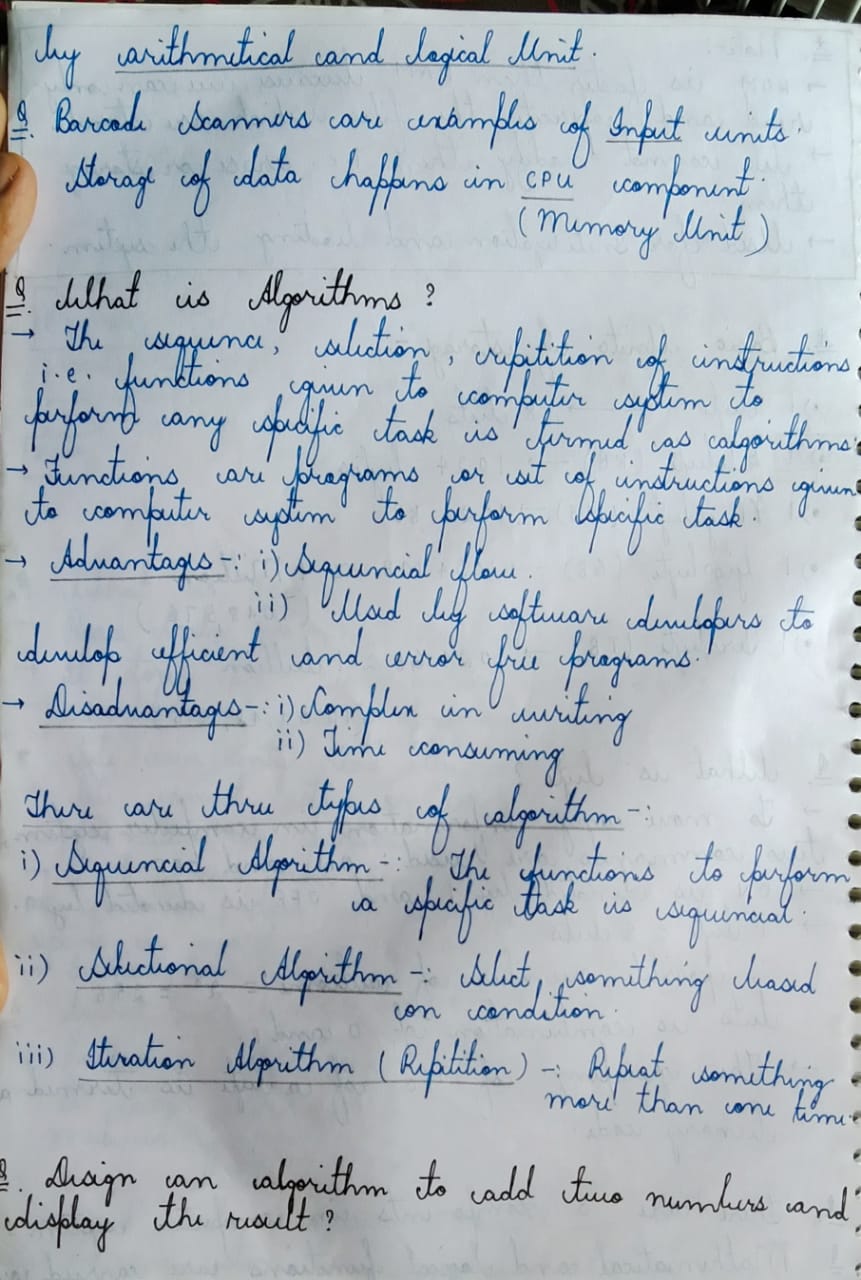 by arithmetical and logical Unit.
Q. Barcode Scanners are examples of Input units.
Storage of data happens in CPU component.
(Memory Unit)
Q. What is Algorithms ?
→ The sequence, selection, repitition of instructions
i.e. functions given to computer system to
perform any specific task is termed as algorithms.
→ Functions are programs or set of instructions given
to computer system to perform specific task.
→ Advantages -: i) Sequencial flow.
ii) Used by software developers to
develop efficient and error free programs.
→ Disadvantages -: i) Complex in writing
ii) Time consuming
There are three types of algorithm -:
i) Sequencial Algorithm -: The functions to perform
a specific task is sequencial.
ii) Selectional Algorithm -: Select something based
on condition.
iii) Iteration Algorithm (Repitition) -: Repeat something
more than one time.
Q. Design an algorithm to add two numbers and
display the result ?